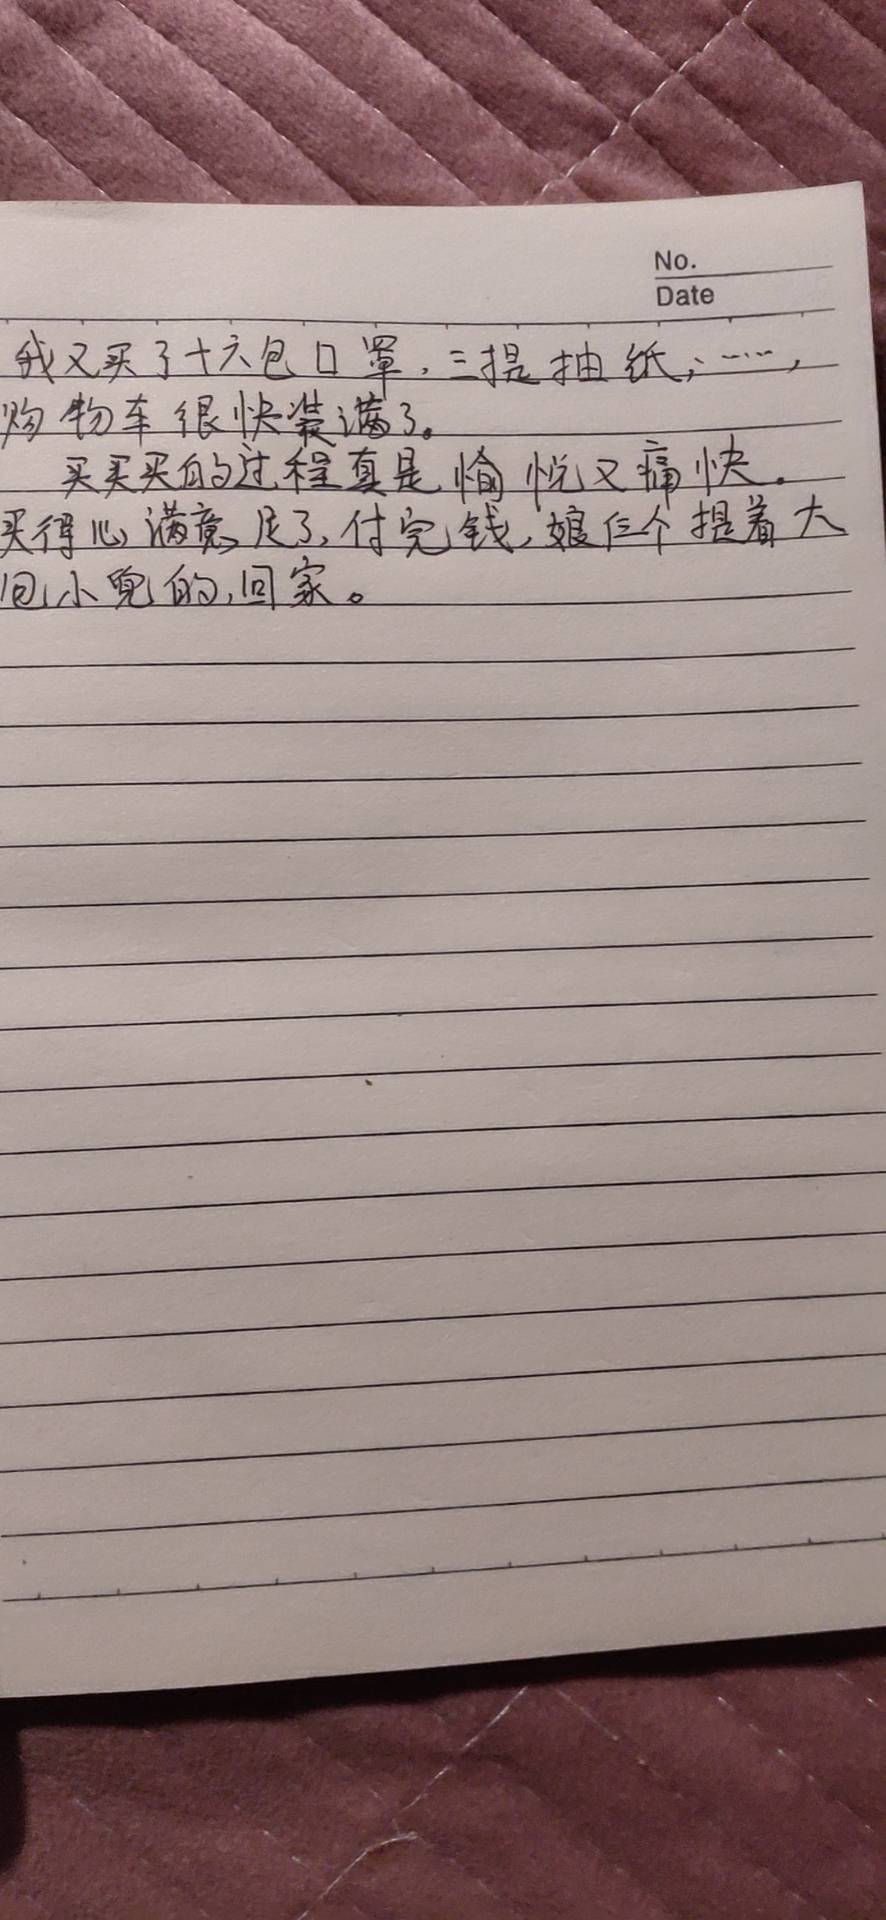 No.
Date
我又买了十六包口罩，三提抽纸；……，
购物车很快装满了。
买买买的过程真是愉悦又痛快。
买得心满意足了，付完钱，娘仨个提着大
包小兜的，回家。